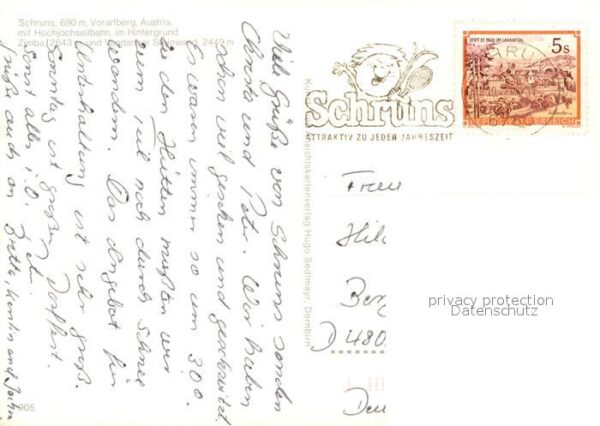 Schruns, 690 m, Vorarlberg, Austria,
mit Hochjochseilbahn, im Hintergrund
Zimba, 2643 m und Vandanser Steinwand, 2449 m
Viele Grüße von Schruns senden
Christa und Peter. Wir haben
schon viel gesehen und geschwitzt.
Es waren immer so um 30°.
Zu den Hütten mußten wir
zum Teil noch durch Schnee
wandern. Das Angebot für
Unterhaltung ist sehr groß.
Sonntag ist großes Dorffest.
Sonst alles i.O. Peter
Grüße auch an
905
Hugo Sedlmayr, Dornbirn
Schruns
ATTRAKTIV ZU JEDER JAHRESZEIT
STIFT ST. PAUL IM LAVANTTAL
5s
REPUBLIK ÖSTERREICH
Frau
Hil
Ber
D 480
privacy protection
Datenschutz